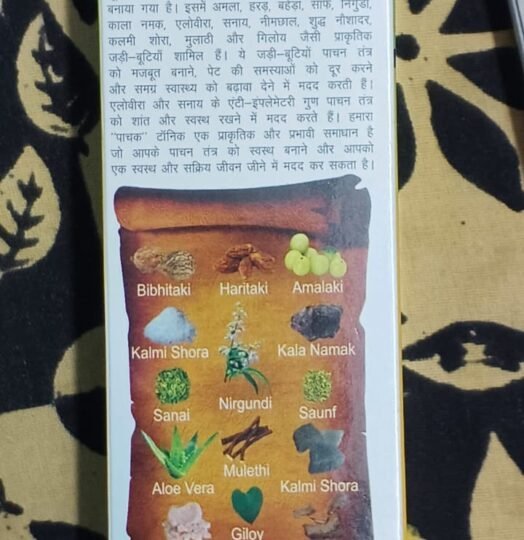 बनाया गया है। इसमें अमला, हरड़, बहेड़ा, सौंफ, निर्गुंडी,
काला नमक, एलोवीरा, सनाय, नीमछाल, शुद्ध नौशादर,
कलमी शोरा, मुलाठी और गिलोय जैसी प्राकृतिक
जड़ी-बूटियाँ शामिल हैं। ये जड़ी-बूटियाँ पाचन तंत्र
को मजबूत बनाने, पेट की समस्याओं को दूर करने
और समग्र स्वास्थ्य को बढ़ावा देने में मदद करती हैं।
एलोवीरा और सनाय के एंटी-इंपलेमेटरी गुण पाचन तंत्र
को शांत और स्वस्थ रखने में मदद करते हैं। हमारा
"पाचक" टॉनिक एक प्राकृतिक और प्रभावी समाधान है
जो आपके पाचन तंत्र को स्वस्थ बनाने और आपको
एक स्वस्थ और सक्रिय जीवन जीने में मदद कर सकता है।
Bibhitaki Haritaki Amalaki
Kalmi Shora Kala Namak
Nirgundi
Sanai Saunf
Mulethi
Aloe Vera Kalmi Shora
Giloy